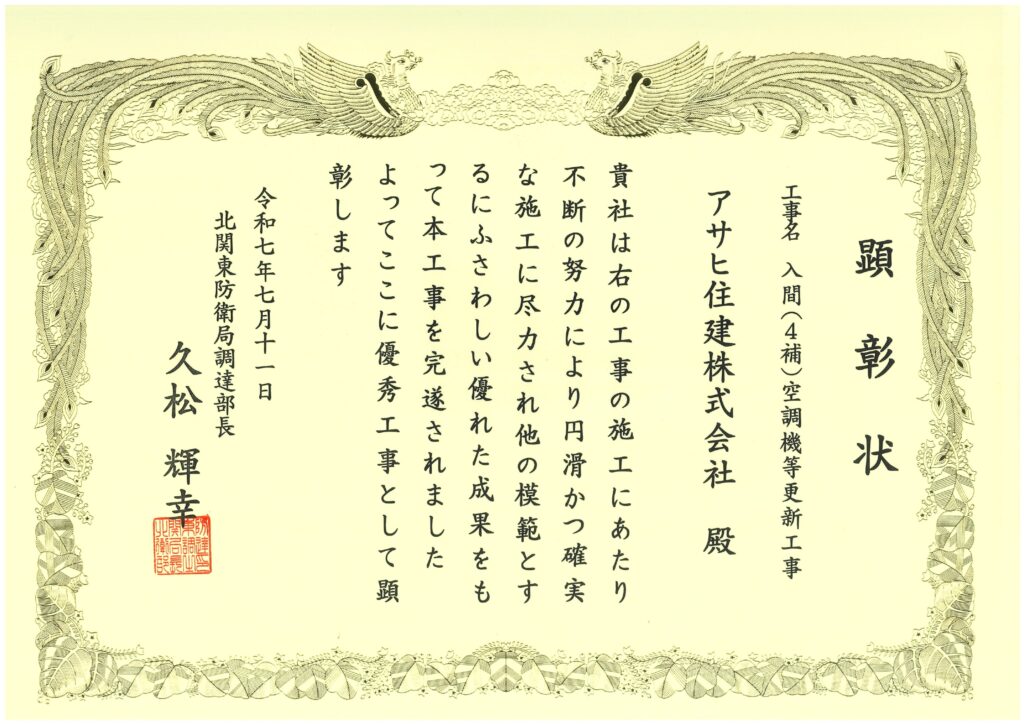 顕彰状
工事名 入間(4補)空調機等更新工事
アサヒ住建株式会社 殿
貴社は右の工事の施工にあたり
不断の努力により円滑かつ確実
な施工に尽力され他の模範とす
るにふさわしい優れた成果をも
って本工事を完遂されました
よってここに優秀工事として顕
彰します
令和七年七月十一日
北関東防衛局調達部長
久松輝幸